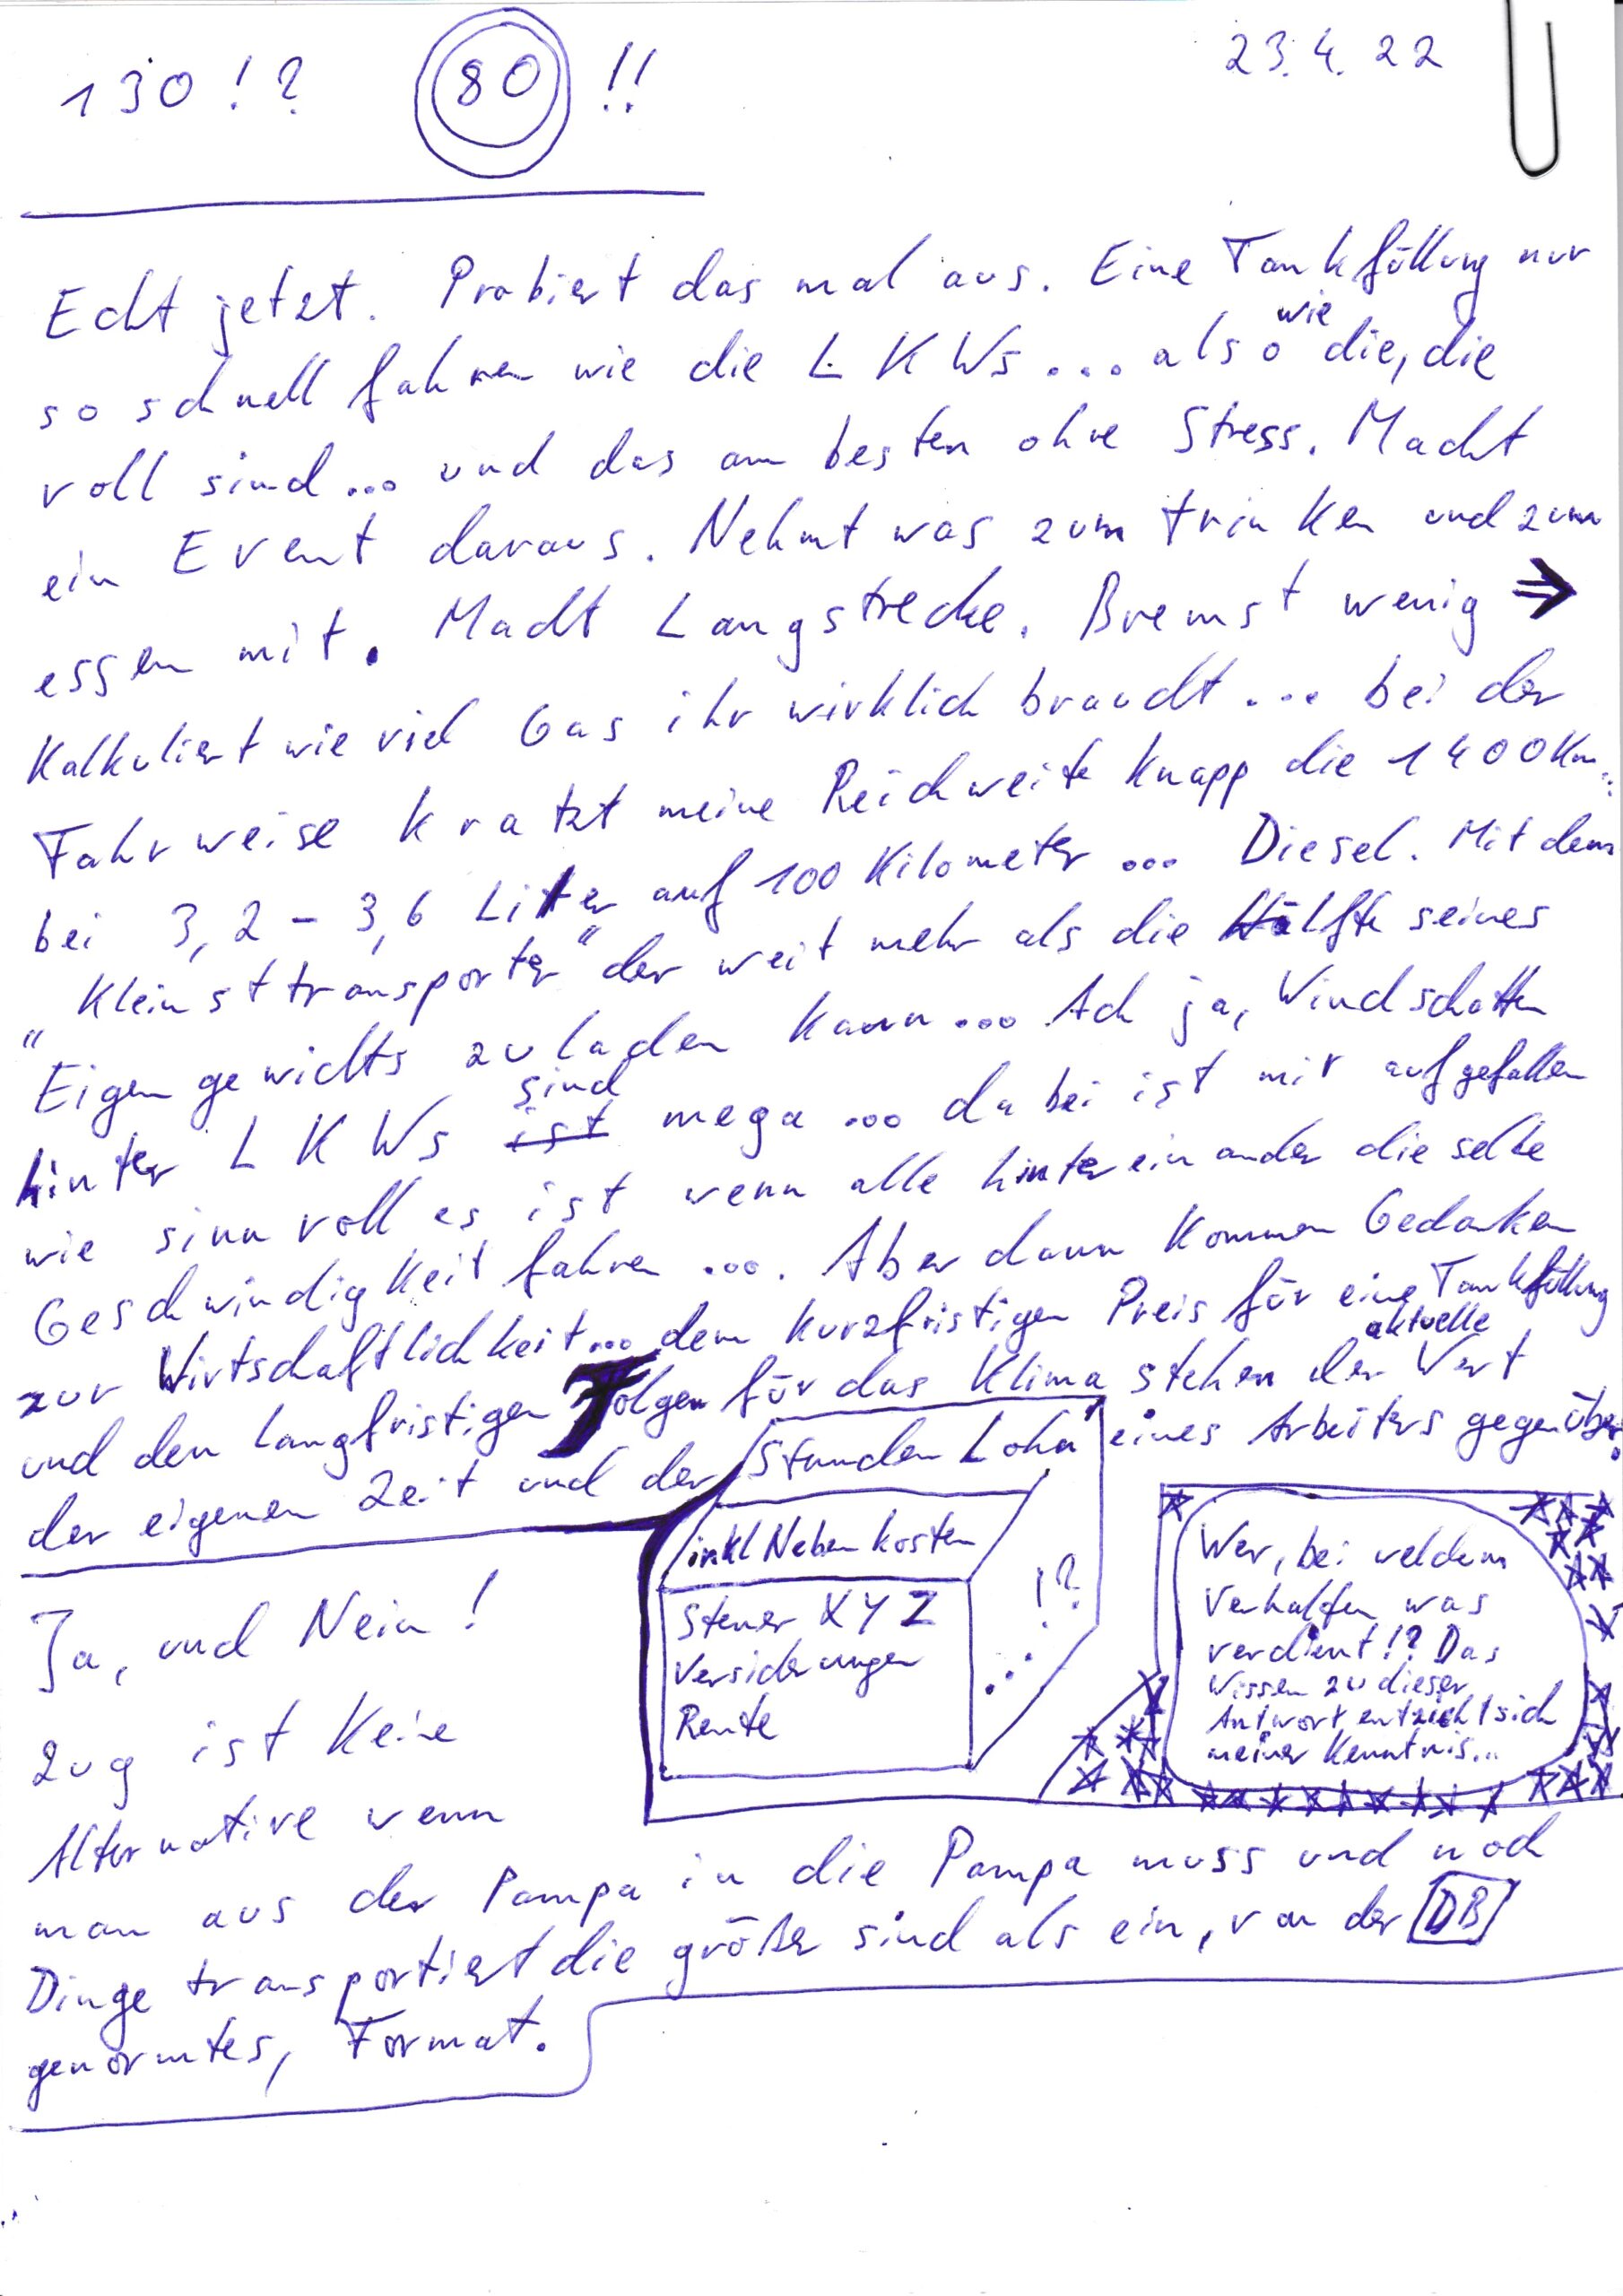 130!? 80 !! 23.4.22
Echt jetzt. Probiert das mal aus. Eine Tankfüllung nur
so schnell fahren wie die LKWs... also wie die, die
voll sind... und das am besten ohne Stress. Macht
ein Event daraus. Nehmt was zum trinken und zum
essen mit. Macht Langstrecke. Bremst wenig →
Kalkuliert wie viel Gas ihr wirklich braucht... bei der
Fahrweise kratzt meine Reichweite knapp die 1400 Km..
bei 3,2 - 3,6 Liter auf 100 Kilometer... Diesel. Mit dem
"Kleinsttransporter" der weit mehr als die Hälfte seines
Eigengewichts zuladen kann... Ach ja, Windschatten
hinter LKWs ist sind mega... dabei ist mir aufgefallen
wie sinnvoll es ist wenn alle hintereinander die selbe
Geschwindigkeit fahren.... Aber dann kommen Gedanken
zur Wirtschaftlichkeit... dem kurzfristigen Preis für eine Tankfüllung
und den langfristigen Folgen für das Klima stehen der aktuelle Wert
der eigenen Zeit und der Stunden Lohn eines Arbeiters gegenüber.
inkl Nebenkosten
Steuer XYZ
Versicherungen
Rente
... !?
Wer, bei welchem
Verhalten was
verdient!? Das
Wissen zu dieser
Antwort entzieht sich
meiner Kenntnis...
Ja, und Nein!
Zug ist keine
Alternative wenn
man aus der Pampa in die Pampa muss und noch
Dinge transportiert die größer sind als ein, von der DB
genormtes, Format.